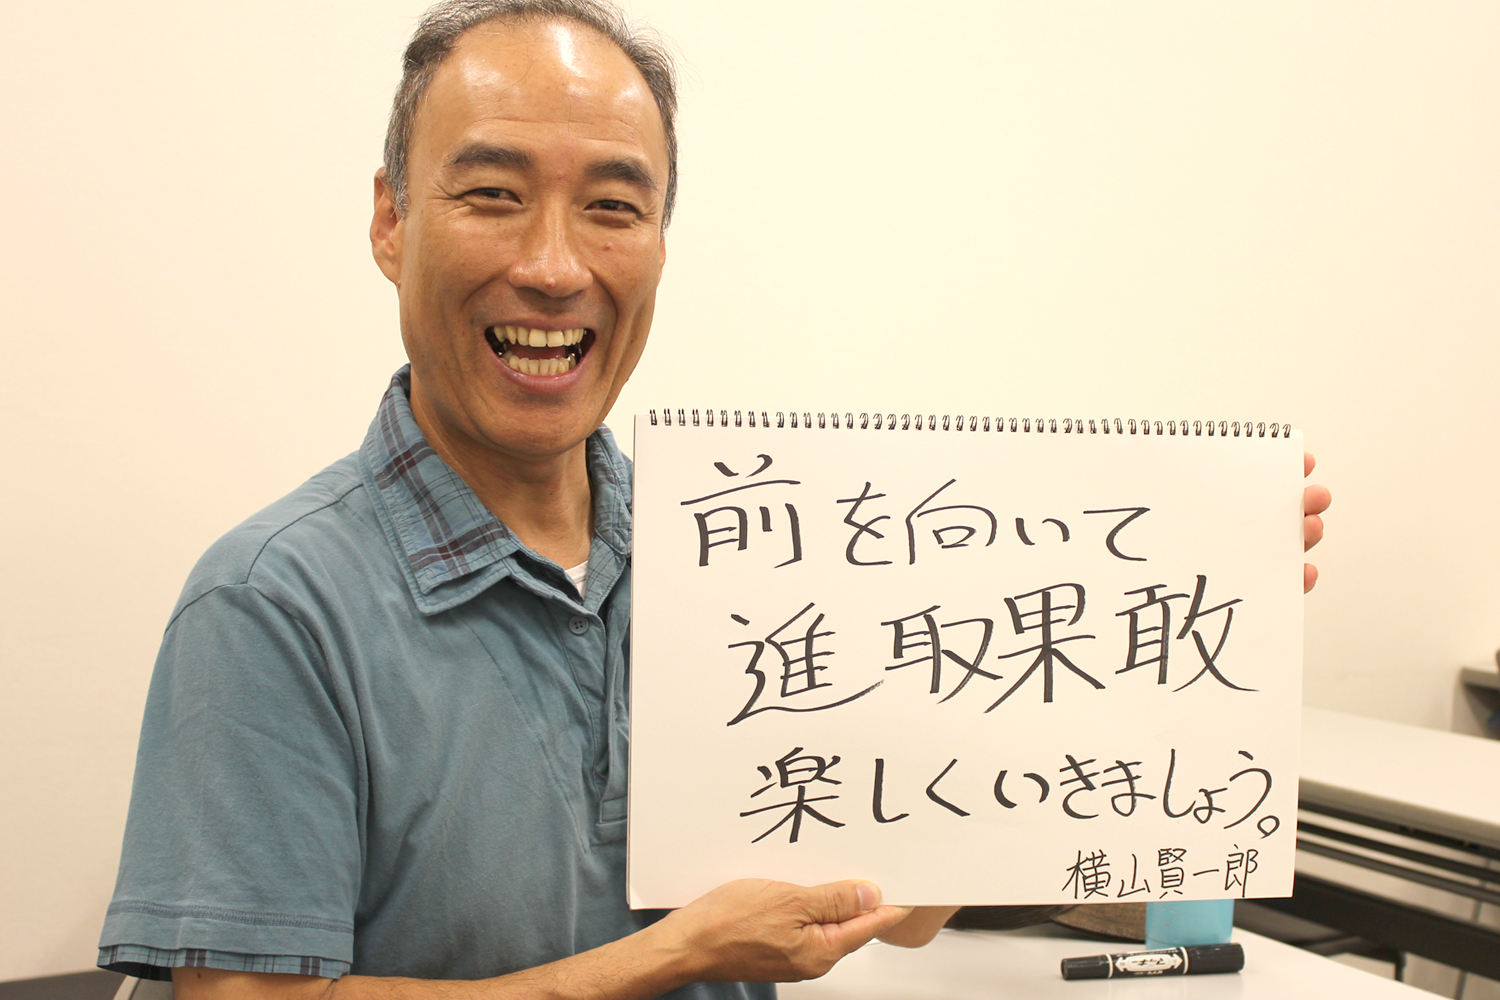 前を向いて
進取果敢
楽しくいきましょう。
横山賢一郎